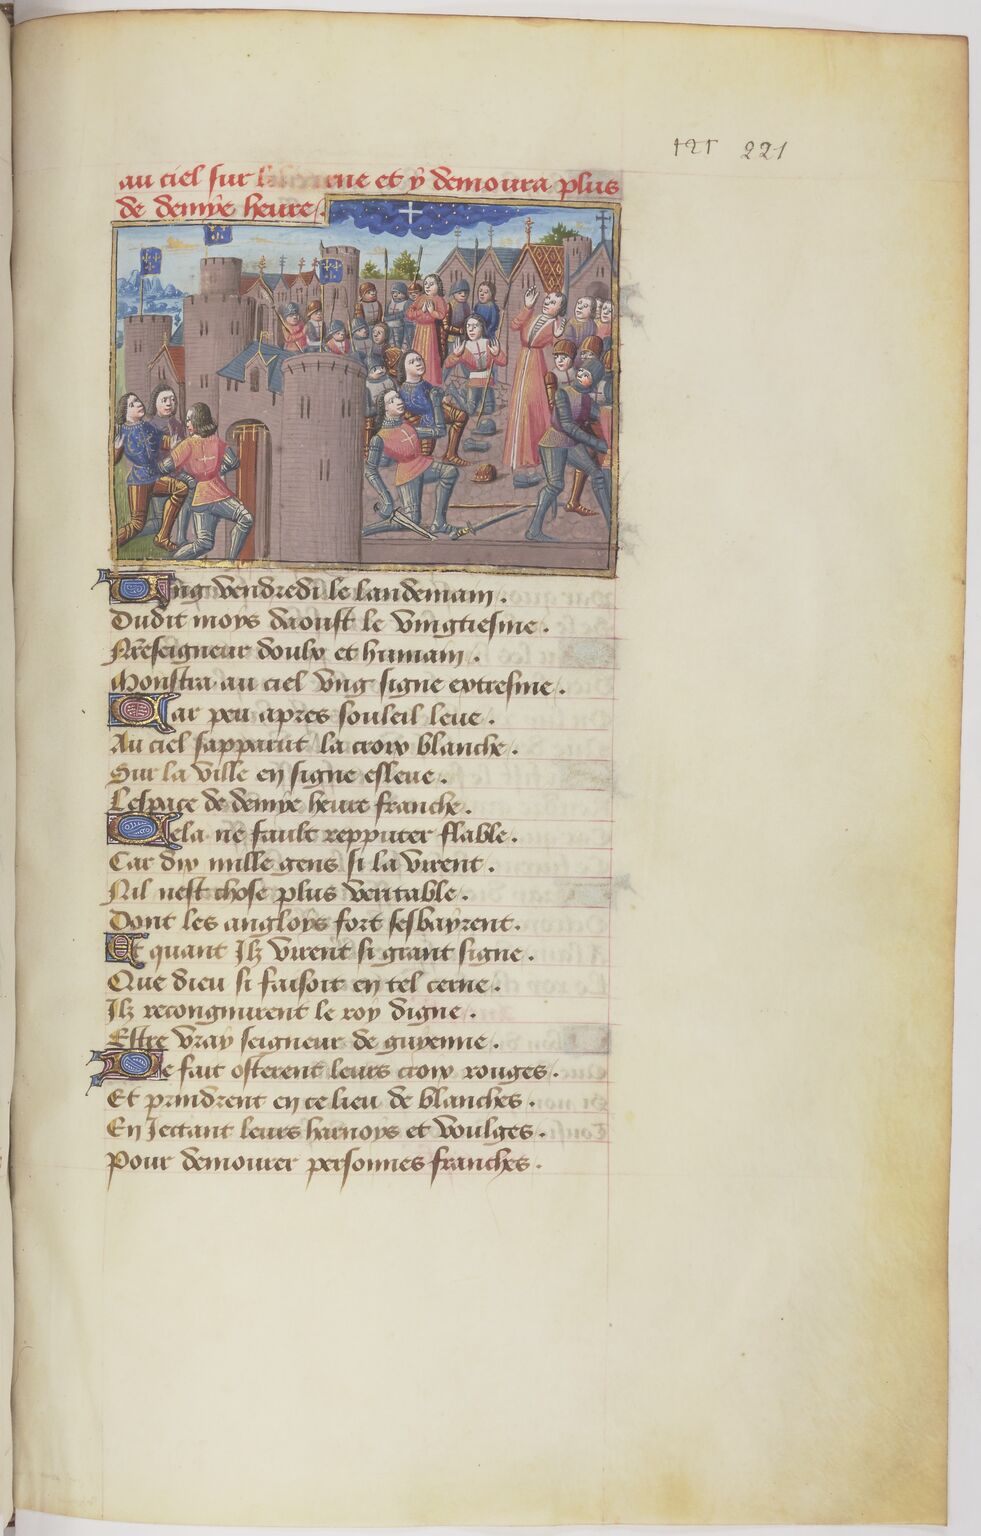 121 221
au ciel sur et y demoura plus
de demye heure.
Ung vendredi le landemain.
Dudit moys daoust le vingtiesme.
Nreseigneur doulx et humain.
Monstra au ciel ung signe extresme.
Car peu apres souleil leue.
Au ciel sapparut la croix blanche.
Sur la ville en signe esleue.
Lespace de demye heure franche.
Cela ne fault repputer flable.
Car dix mille gens si la virent.
Nil nest chose plus veritable.
Dont les angloys fort sesbayrent.
Et quant Ilz virent si grant signe.
Que dieu si faisoit en tel cerne.
Ilz recongnurent le roy digne.
Estre vray seigneur de guyenne.
De fait osterent leurs croix rouges.
Et prindrent en ce lieu de blanches.
En Jectant leurs harnoys et voulges.
Pour demourer personnes franches.